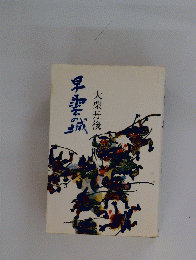 早雲城
大栗丹後